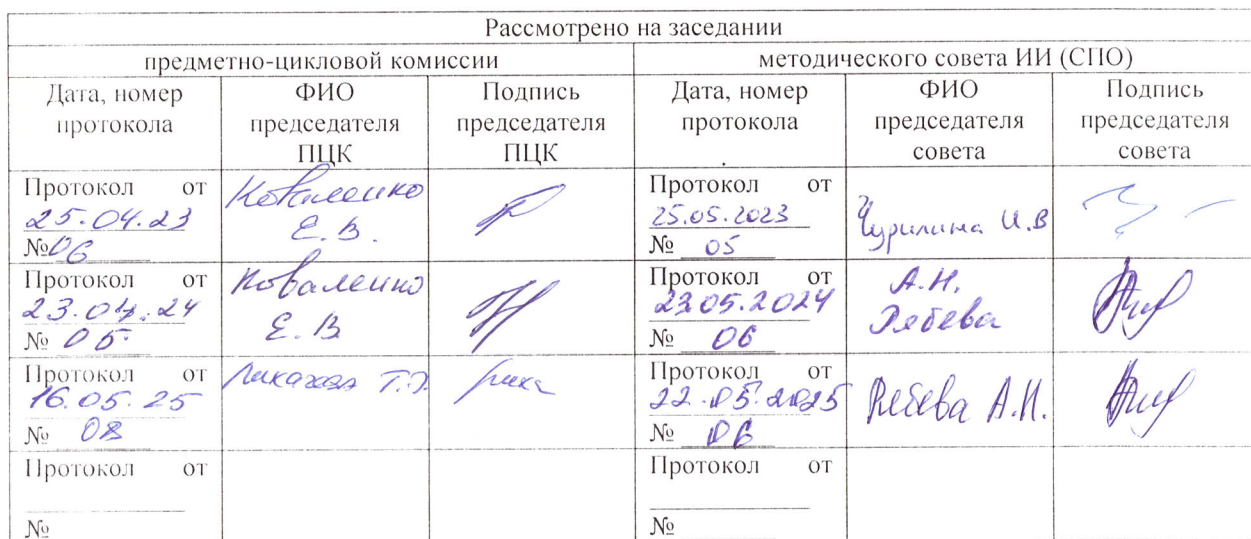 Рассмотрено на заседании
предметно-цикловой комиссии методического совета ИИ (СПО)
Дата, номер протокола ФИО председателя ПЦК Подпись председателя ПЦК Дата, номер протокола ФИО председателя совета Подпись председателя совета
Протокол от
25.04.23
№06
Коваленко
Е.В.
Протокол от
25.05.2023
№ 05
Чурилина И.В
Протокол от
23.04.24
№ 05
Коваленко
Е.В
Протокол от
23.05.2024
№ 06
А.Н.
Протокол от
16.05.25
№ 08
Протокол от
22.05.2025
№ 06
А.Н.
Протокол от
№
Протокол от
№